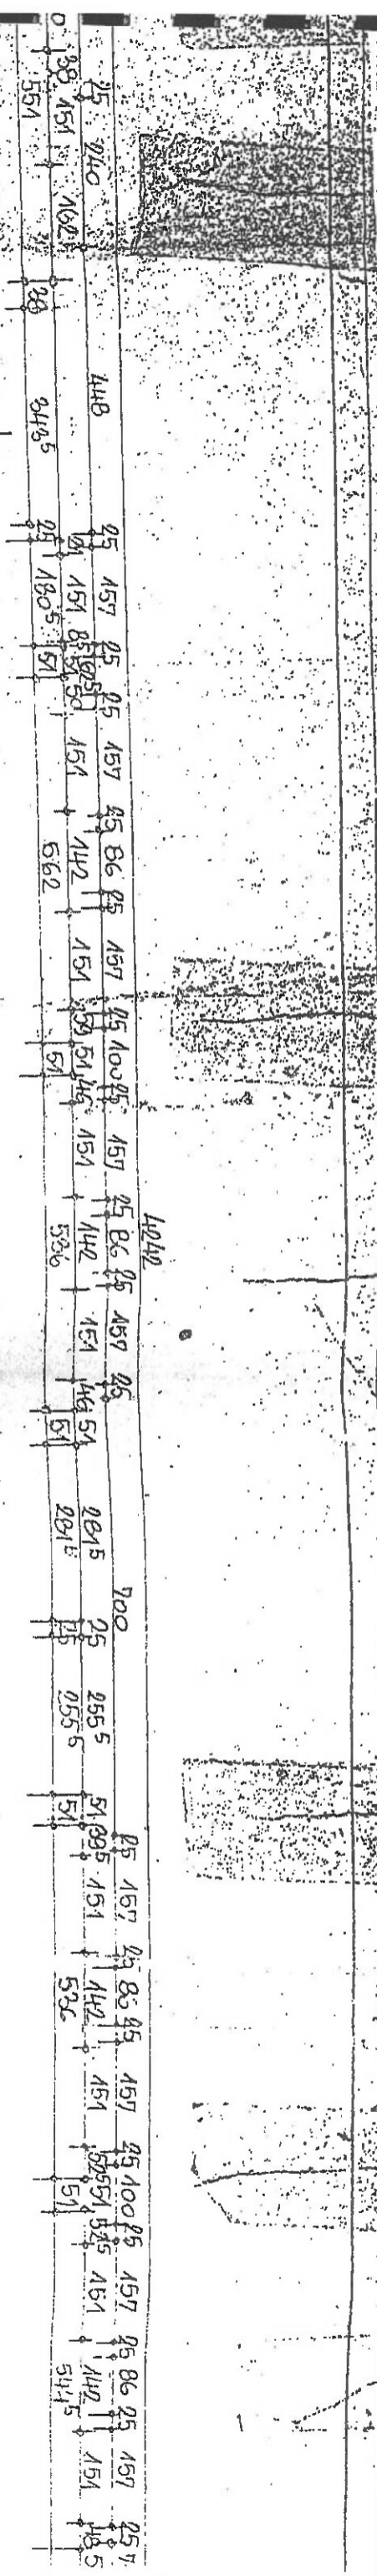 4242
25 240 448 25 157 25 25 157 25 86 25 157 25 100 25 157 25 86 25 157 25 700 25 157 25 86 25 157 25 100 25 157 25 86 25 157 25
151 162⁵ 151 151 142 151 51 46 151 142 151 46 51 281⁵ 25 255⁵ 51 151 142 151 51 151 142 151
551 343⁵ 25 180⁵ 51 562 51 536 51 281⁵ 25 255⁵ 51 536 51 544⁵